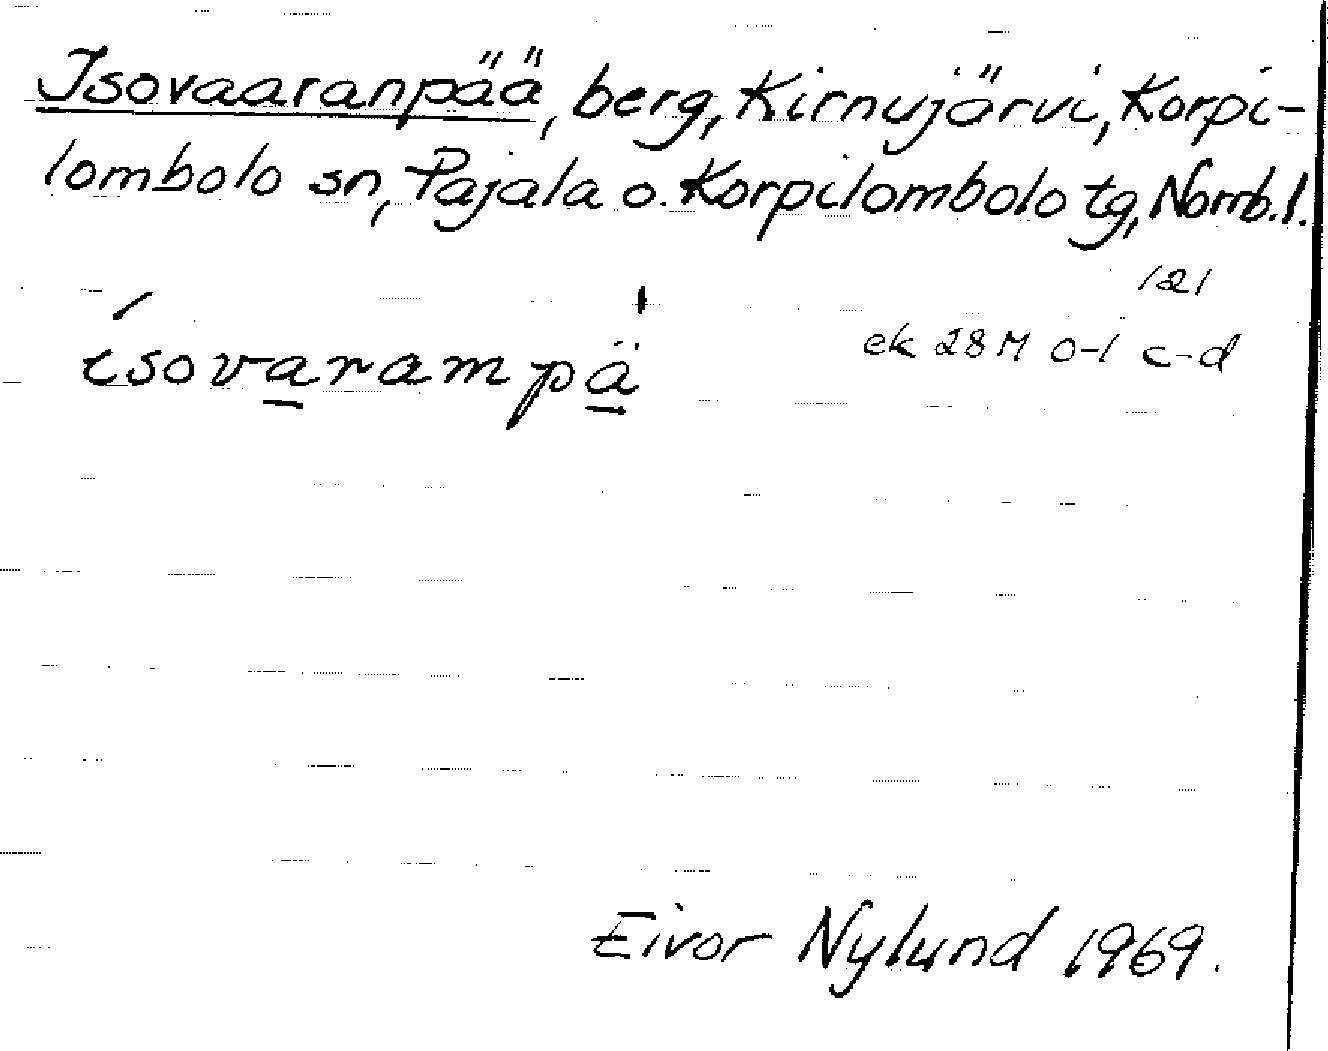 Isovaaranpää, berg, Kirnujärvi, Korpi-
lombolo sn, Pajala o. Korpilombolo tg, Norrb.l.
121
ísova̲rampä̲'
ek 28 M 0-1 c-d
Eivor Nylund 1969.